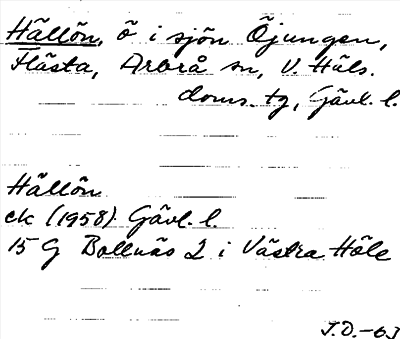 Hällön, ö i sjön Öjungen,
Flästa, Arbrå sn, V. Häls.
doms. tg, Gävl. l.
Hällön
ek (1958) Gävl. l.
15 G Bollnäs 2 i Västra Höle
J.D.-63